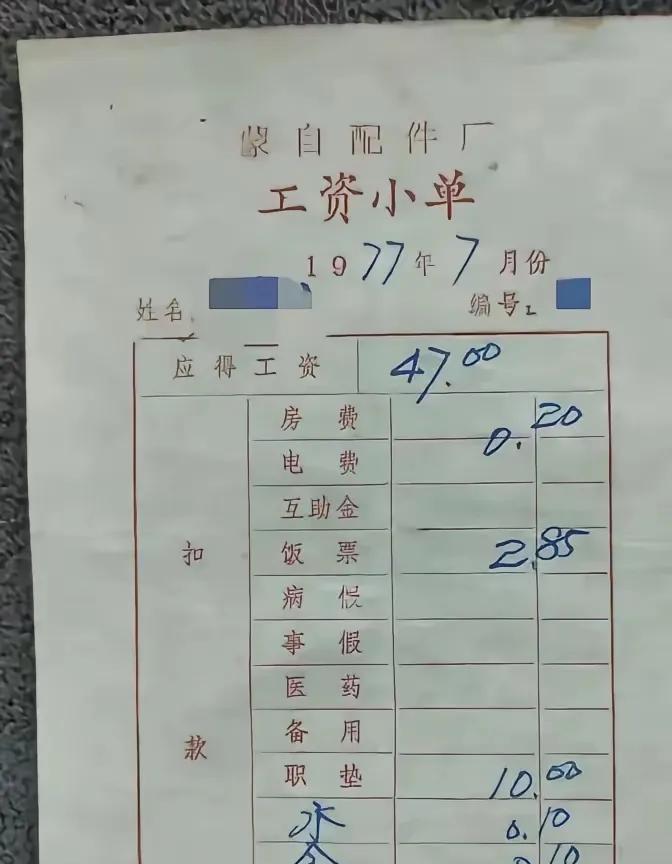 蒙自配件厂
工资小单
1977年7月份
姓名
编号
应得工资 47.00
扣款
房费 0.20
电费
互助金
饭票 2.85
病假
事假
医药
备用
职垫 10.00
水 0.10
0.10